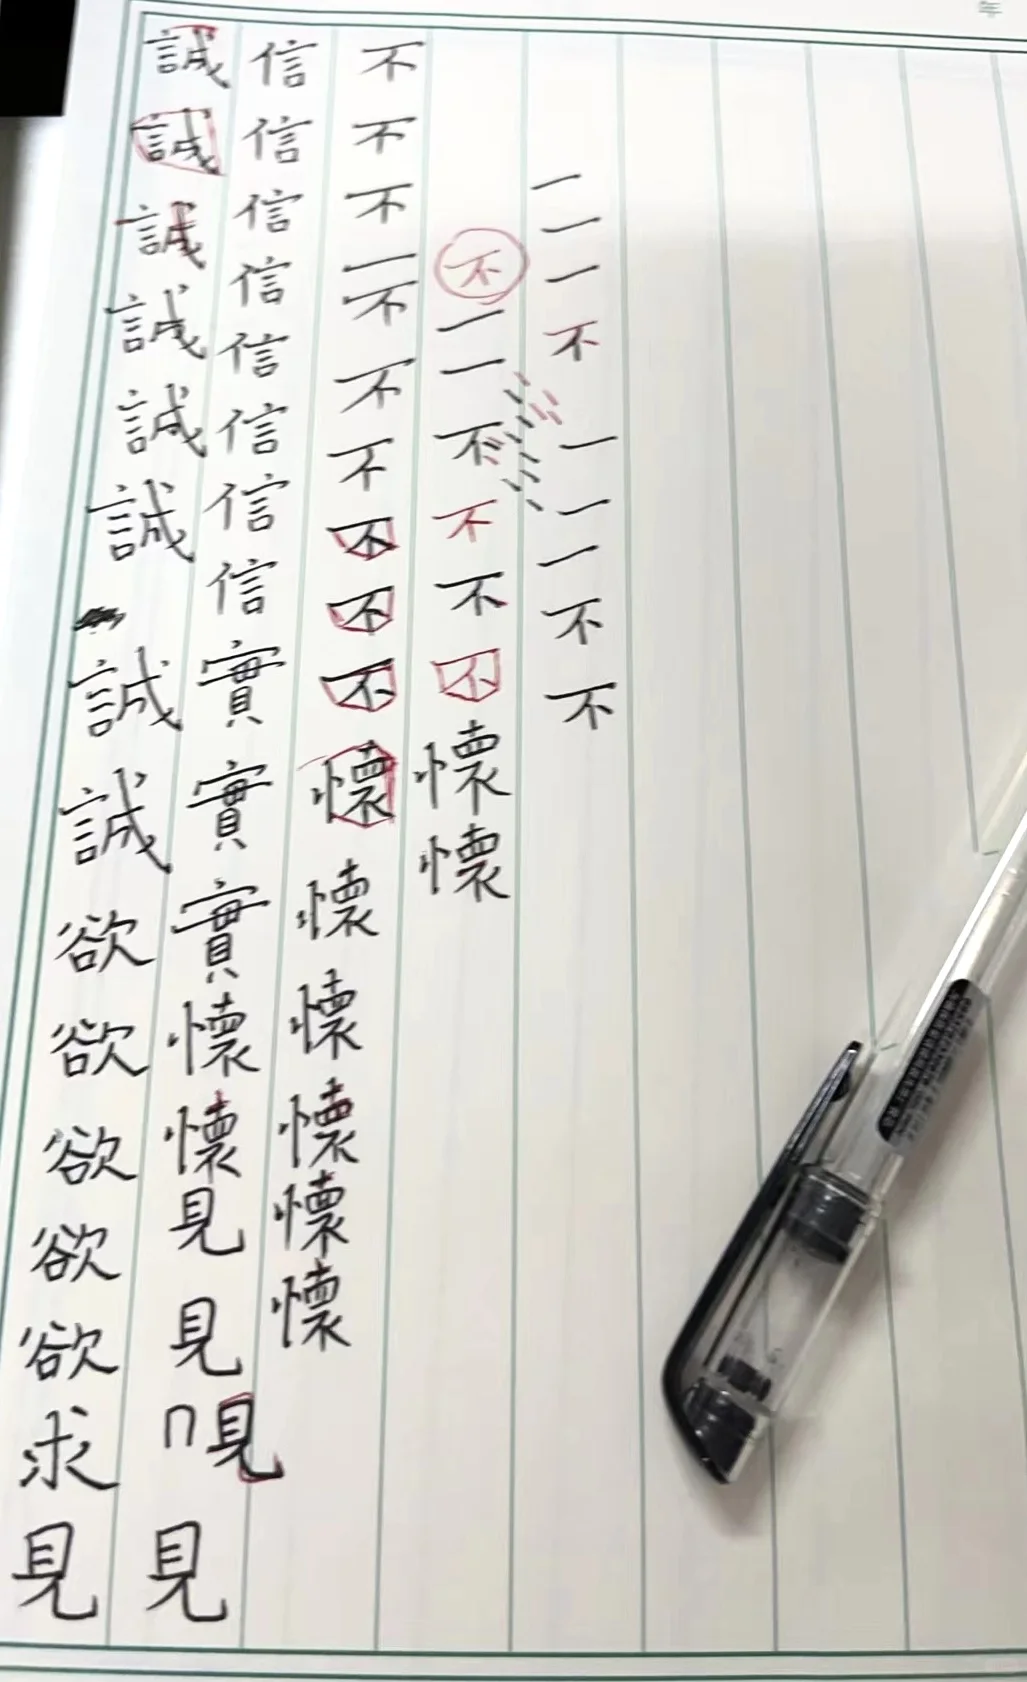 誠誠誠誠誠誠誠誠欲欲欲欲欲求見
信信信信信信信信實實實懷懷見見見見
不不不一不不不不不不懷懷懷懷懷懷
不一一不不不不懷懷
一一一不一一一不不
年